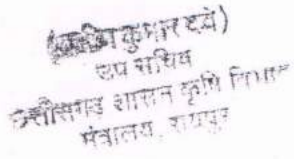 कुमार दवे)
उप सचिव
छत्तीसगढ़ शासन कृषि विभाग
मंत्रालय, रायपुर